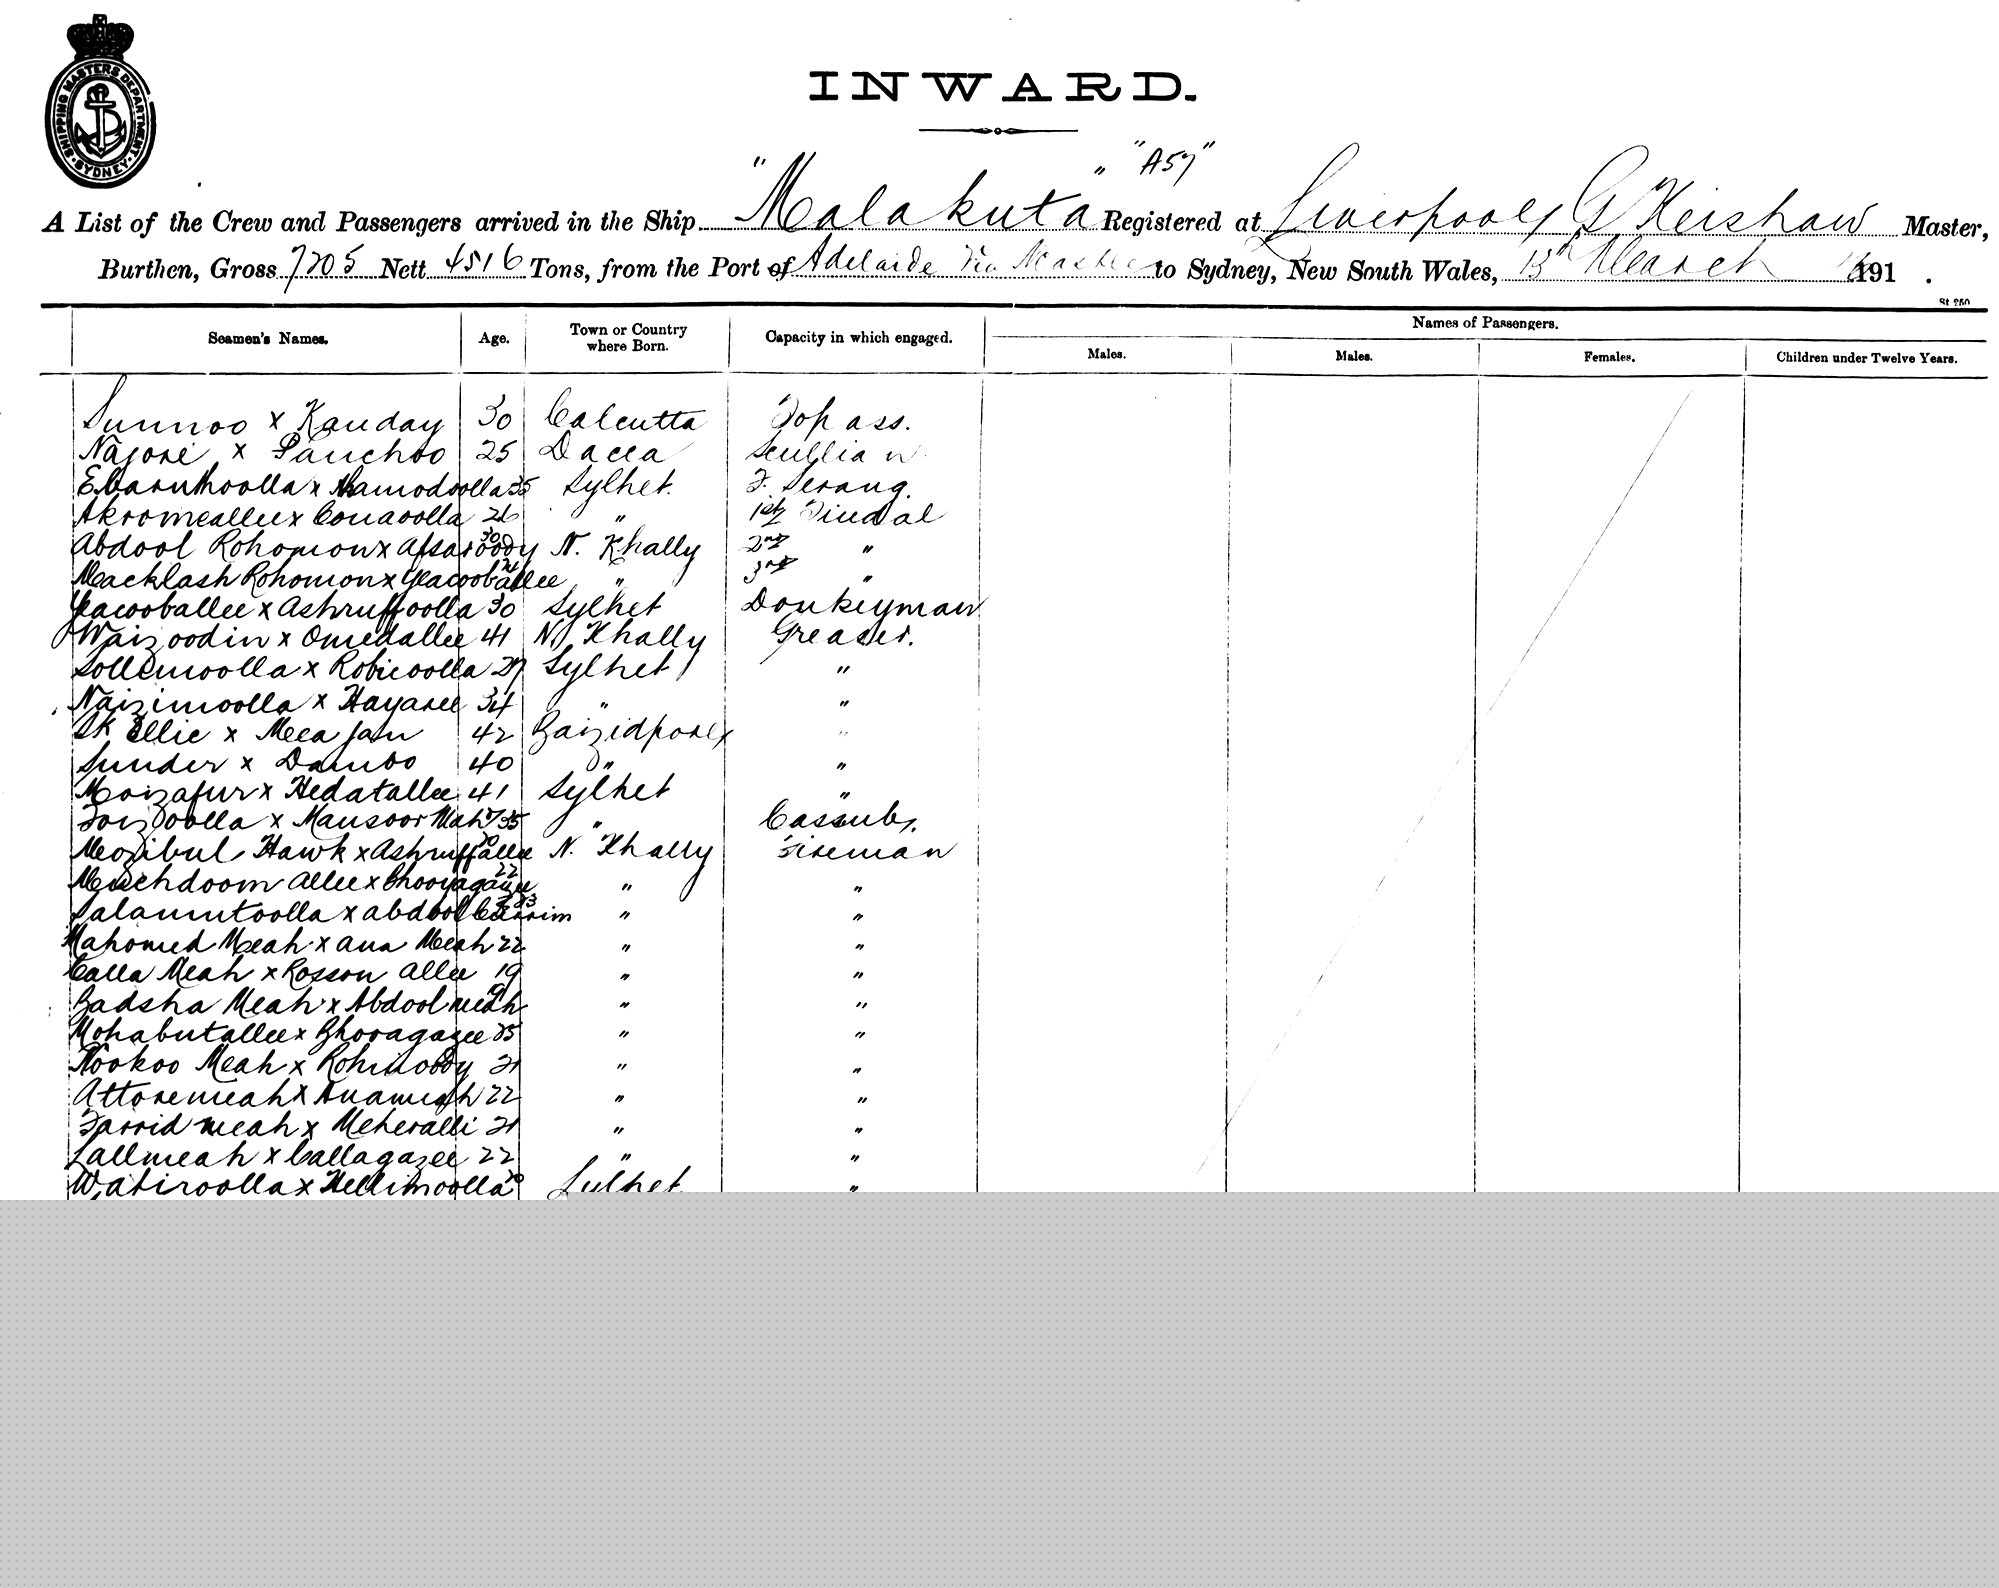 SHIPPING MASTERS DEPARTMENT
SYDNEY
INWARD.
" "A57"
A List of the Crew and Passengers arrived in the Ship "Malakuta Registered at Liverpool, G Kershaw Master,
Burthen, Gross 7205 Nett 4516 Tons, from the Port of Adelaide Via to Sydney, New South Wales, 15th March 191 .
St 250
Seamen's Names. Age. Town or Country where Born. Capacity in which engaged. Names of Passengers.
Males. Males. Females. Children under Twelve Years.
Sunnoo x Kauday 30 Calcutta Topass.
Najore x Panchoo 25 Dacca Scullian
x 35 Sylhet. F. Serang.
Akromeallee x Conaoolla 26 " 1st Tindal
Abdool Rohomon x Afsaroody 30 N. Khally 2nd "
Macklash Rohomon x Yeacooballee 21 " 3rd "
Yeacooballee x Ashruffoolla 30 Sylhet Donkeyman
Waizoodin x Omedallee 41 N. Khally Greaser.
Sollemoolla x Robieoolla 29 Sylhet "
Naizimoolla x Hayaree 34 " "
Sk Ellie x Meea Jan 42 "
Sunder x Damoo 40 " "
Moizafur x Hedatallee 41 Sylhet "
Foizoolla x Mansoor Mah'd 35 " Cassub.
Mozibul Hawk x Ashruffallee 20 N. Khally Fireman
Muchdoom Allee x Bhooyagazee 22 " "
Salamutoolla x Abdool Carrim 23 " "
Mahomed Meah x Ana Meah 22 " "
Calla Meah x Rosson Allee 19 " "
Badsha Meah x Abdool meah 19 " "
Mohabutallee x Bhooagazee 25 " "
Nookoo Meah x Rohimoody 21 " "
Attoremeah x Anameah 22 " "
Farrid meah x Meheralli 21 " "
Lallmeah x Callagazee 22 " "
Watiroolla x Hellimoolla 20 Sylhet "